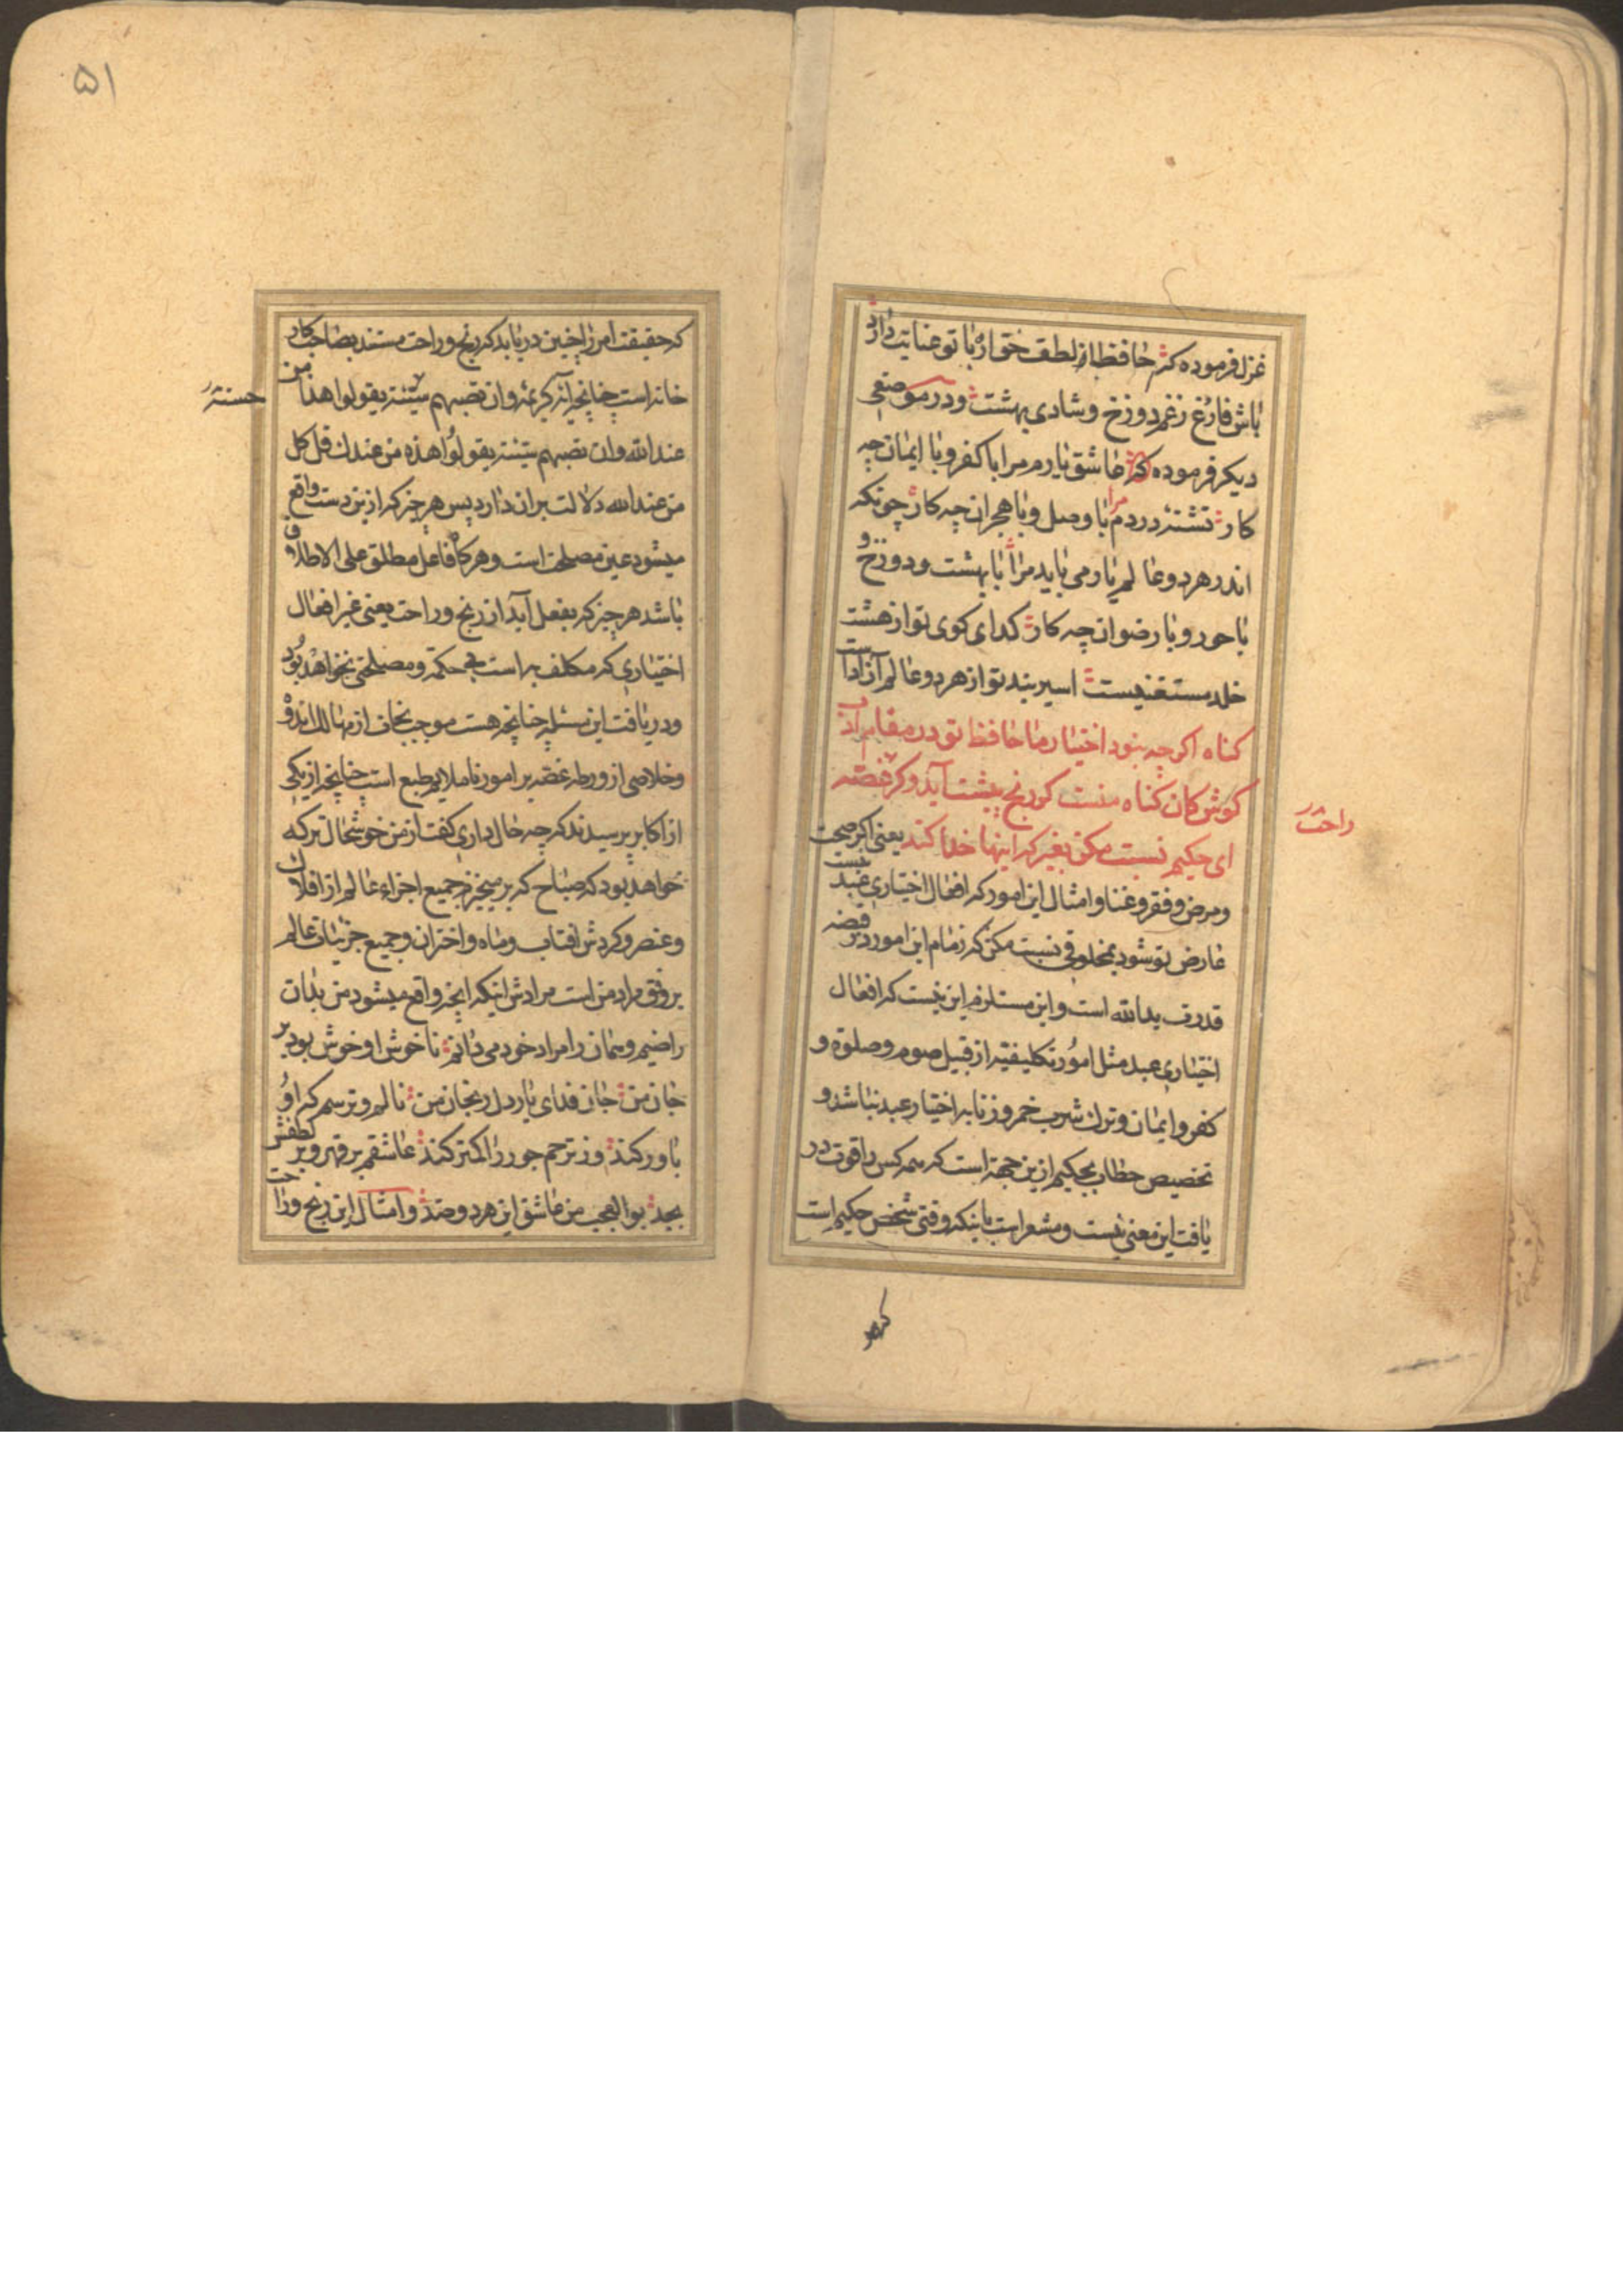 غزل فرموده که حافظ از لطف حق ار با تو عنایت دارد
باش فارغ زغم دوزخ و شادی بهشت و در موضعی
دیگر فرموده که عاشق یارم مرا با کفر و با ایمان چه
کار تشنه دردم مرا با وصل و با هجران چه کار چونکه
اندر هر دو عالم یار می باید مرا با بهشت و دوزخ و
با حور و با رضوان چه کار کدای کوی تو از هشت
خلد مستغنیست اسیر بند تو از هر دو عالم آزاد است
کناه اکرچه نبود اختیار ما حافظ تو در مقام ادب
کوش کان کناه منست کر رنج پیشت آید و کر غصه
راحت
ای حکیم نسبت مکن بغیر که اینها خدا کند یعنی اکر صحت
و مرض و فقر و غنا و امثال این امور که افعال اختیاری عبد نیست
عارض تو شود بمخلوقی نسبت مکن که زمام این امور در قبضه
قدرت یدالله است و این مستلزم این نیست که افعال
اختیاری عبد مثل امور تکلیفیه از قبیل صوم و صلوة و
کفر و ایمان و ترک شرب خمر و زنا به اختیار عبد نباشد و
تخصیص خطاب بحکیم ازین جهة است که همه کس را قوت در
یافت این معنی نیست و مشعر است باینکه وقتی شخص حکیم است
که
۵۱
که حقیقت امر را چنین دریابد که رنج و راحت مستند بصاحب کار
خانه است چنانچه آیه کریمه و ان تصبهم سیئة یقولوا هذا من
حسنة
عند الله و ان تصبهم سیئة یقولوا هذه من عندک قل کل
من عند الله دلالت بر ان دارد پس هر چیز که ازین دست واقع
میشود عین مصلحت است و هرکاه فاعل مطلق علی الاطلاق
باشد هر چیز که بفعل آید از رنج و راحت یعنی غیر افعال
اختیاری که مکلف به است بی حکمة و مصلحتی نخواهد بود
و دریافت این مسئله چنانچه هست موجب نجات از مهالک اندوه
و خلاصی از ورطه غصه بر امور ناملایم طبع است چنانچه از یکی
از اکابر پرسیدند که چه حال داری کفت از من خوشحال تر که
خواهد بود که صباح که بر میخیزم جمیع اجزاء عالم از افلاک
و عنصر و کردش افتاب و ماه و اختران و جمیع جزئیات عالم
بر وفق مراد من است مرادش اینکه انچه واقع میشود من بدان
راضیم و همان را مراد خود می دانم ناخوش او خوش بود بر
جان من جان فدای یار دل رنجان من نالم و ترسم که او
باور کند وز ترحم جور را کمتر کند عاشقم بر قهر و بر لطفش
بجد بوالعجب من عاشق این هر دو ضد و امثال این رنج و راحت